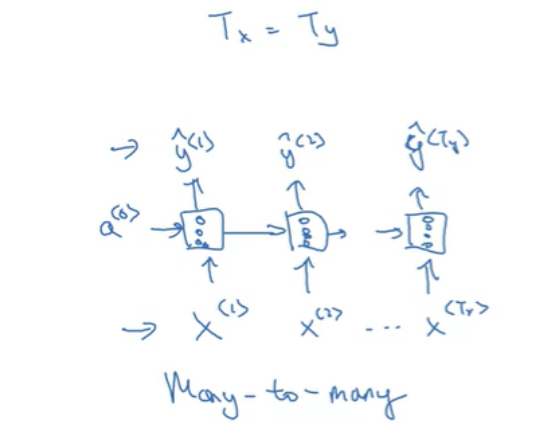 Tₓ = Tᵧ
→ ŷ⟨1⟩ ŷ⟨2⟩ ŷ⟨Tᵧ⟩
a⟨0⟩
→ x⟨1⟩ x⟨2⟩ ... x⟨Tₓ⟩
Many-to-many